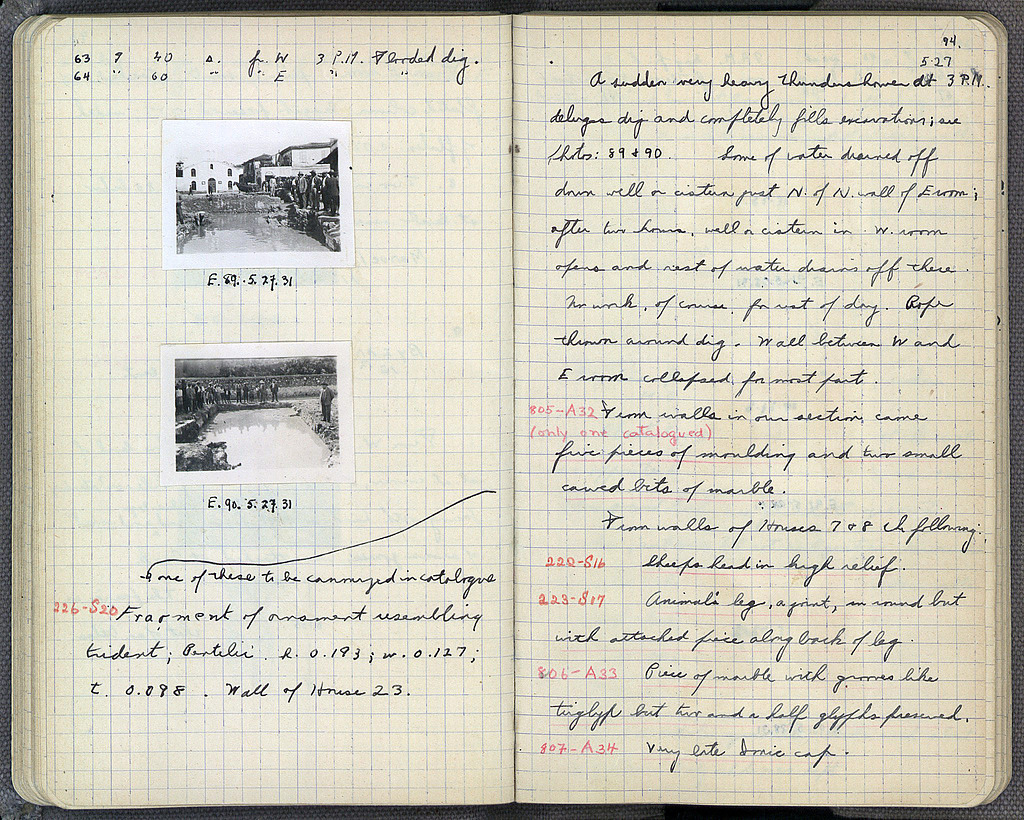 63 9 40 Δ. fr. W 3 P.M. Flooded dig.
64 " 60 " E " "
E. 89. 5. 27. 31
E. 90. 5. 27. 31
one of these to be in catalogue
226-S20 Fragment of ornament resembling
trident; Pentelic. h. 0.193; w. 0.127;
t. 0.098. Wall of House 23.
94.
5-27
A sudden very heavy thundershower at 3 P.M.
deluges dig and completely fills excavations; see
Photos: 89 & 90. Some of water drained off
down well or cistern just N. of N. wall of E room;
after two hours, well or cistern in W. room
opens and rest of water drains off there.
No work, of course, for rest of day. Rope
thrown around dig. Wall between W and
E room collapsed for most part.
805-A32 From walls in our section came
(only one catalogued)
five pieces of moulding and two small
carved bits of marble.
From walls of Houses 7 & 8 ch following:
222-S16 Sheep's head in high relief.
223-S17 Animal's leg, a joint, in round but
with attached piece along back of leg.
806-A33 Piece of marble with grooves like
triglyph but two and a half glyphs preserved.
807-A34 Very late Ionic cap.